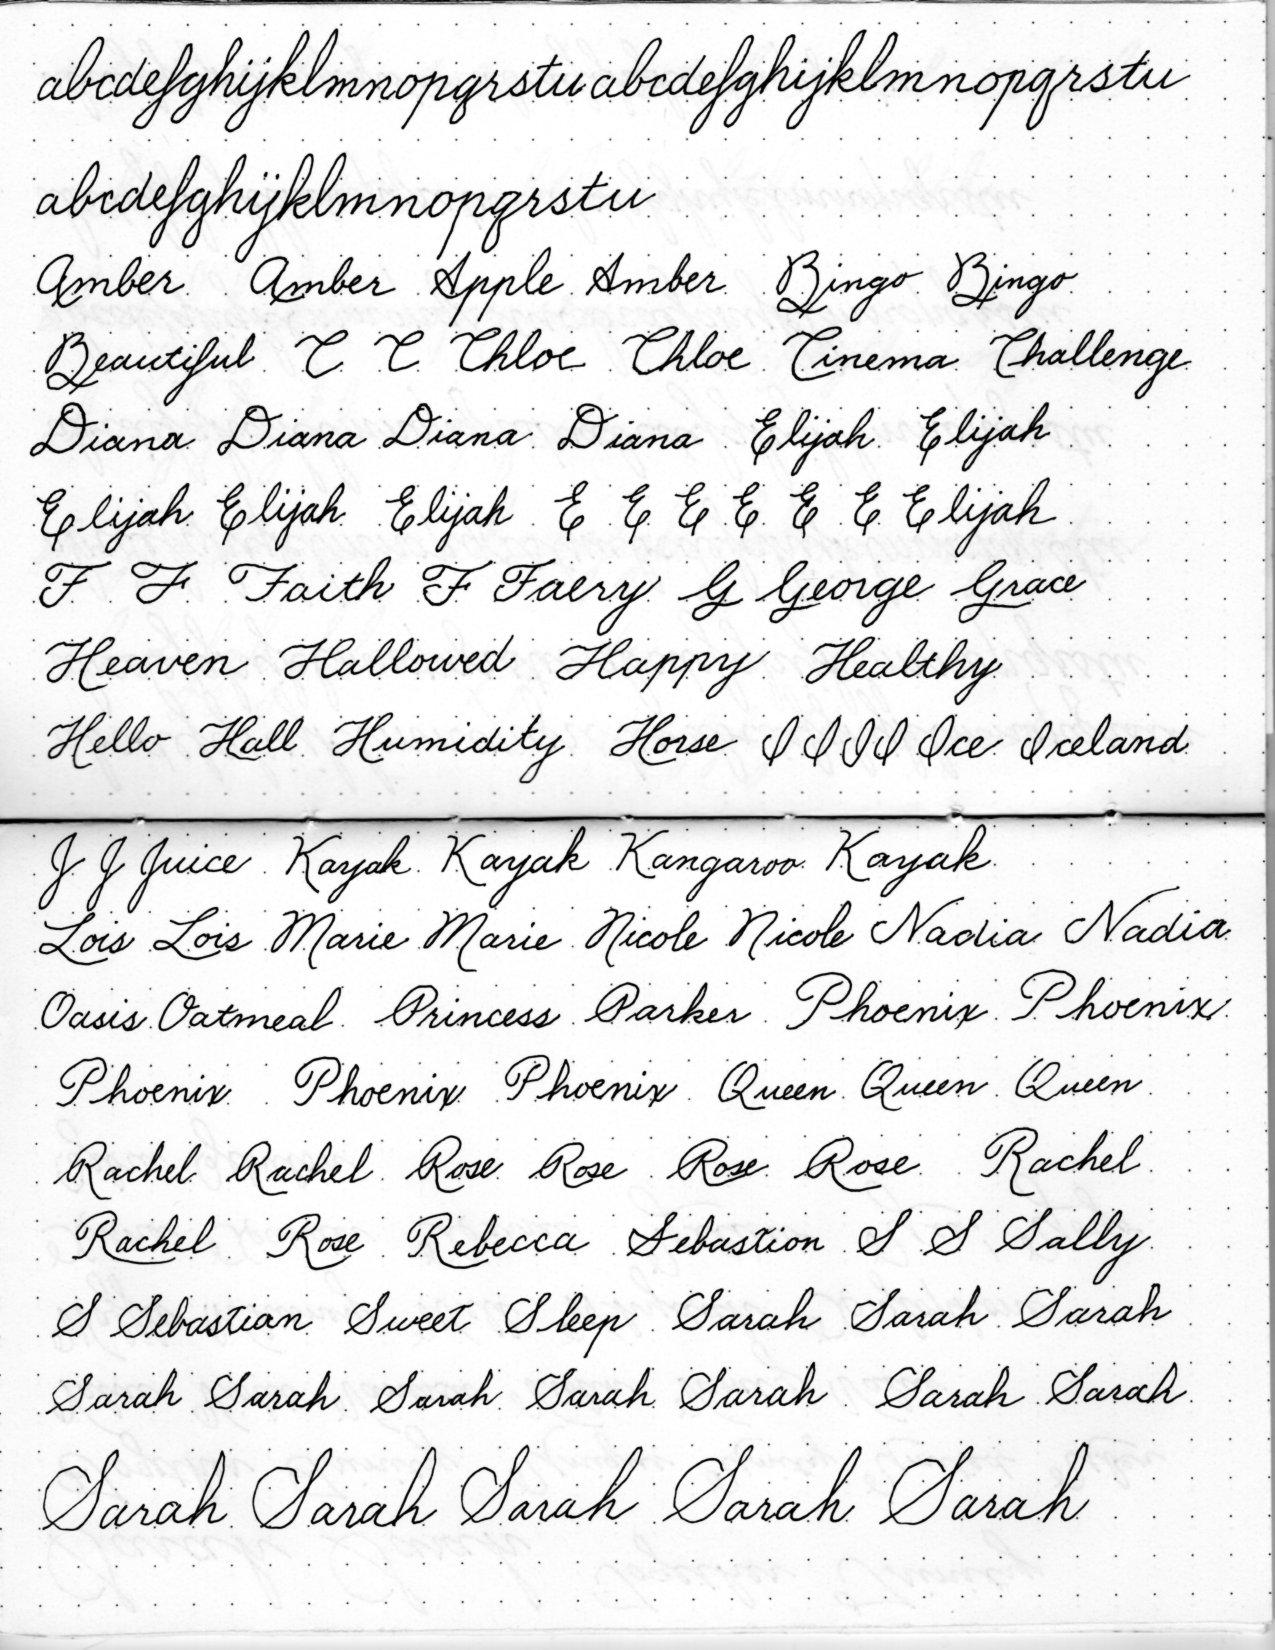 abcdefghijklmnopqrstu abcdefghijklmnopqrstu
abcdefghijklmnopqrstu
Amber Amber Apple Amber Bingo Bingo
Beautiful C C Chloe Chloe Cinema Challenge
Diana Diana Diana Diana Elijah Elijah
Elijah Elijah Elijah E E E E E E Elijah
F F Faith F Faery G George Grace
Heaven Hallowed Happy Healthy
Hello Hall Humidity Horse I I I I Ice Iceland
J J Juice Kayak Kayak Kangaroo Kayak
Lois Lois Marie Marie Nicole Nicole Nadia Nadia
Oasis Oatmeal Princess Parker Phoenix Phoenix
Phoenix Phoenix Phoenix Queen Queen Queen
Rachel Rachel Rose Rose Rose Rose Rachel
Rachel Rose Rebecca Sebastion S S Sally
S Sebastian Sweet Sleep Sarah Sarah Sarah
Sarah Sarah Sarah Sarah Sarah Sarah Sarah
Sarah Sarah Sarah Sarah Sarah